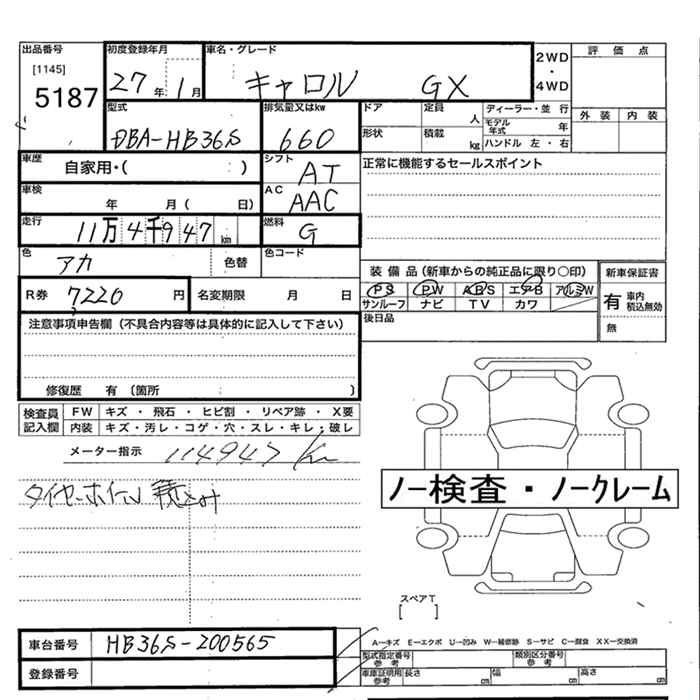 出品番号
[1145]
5187
初度登録年月
27年 1月
車名・グレード
キャロル GX
2WD
・
4WD
評価点
外装 内装
型式
DBA-HB36S
排気量又はkw
660
ドア
定員
人
形状
積載
kg
ディーラー・並行
モデル年式 年
ハンドル 左・右
車歴
自家用・( )
シフト
AT
正常に機能するセールスポイント
車検
年 月( 日)
AC
AAC
走行
11万4千947km
燃料
G
色
アカ
色替
色コード
R券
7220円
名変期限 月 日
装備品(新車からの純正品に限り○印)
PS PW ABS エアB アルミW
サンルーフ ナビ TV カワ
新車保証書
有 車内積込無効
無
後日品
注意事項申告欄(不具合内容等は具体的に記入して下さい)
修復歴 有〔箇所 〕
検査員記入欄
FW キズ・飛石・ヒビ割・リペア跡・X要
内装 キズ・汚レ・コゲ・穴・スレ・キレ・破レ
メーター指示 114947km
タイヤ・ホイール 積込み
ノー検査・ノークレーム
スペアT
[ ]
車台番号 HB36S-200565
登録番号
A―キズ E―エクボ U―凹み W―補修跡 S―サビ C―腐食 XX―交換済
型式指定番号参考
類別区分番号参考
車庫証明用参考
長さ cm 幅 cm 高さ cm